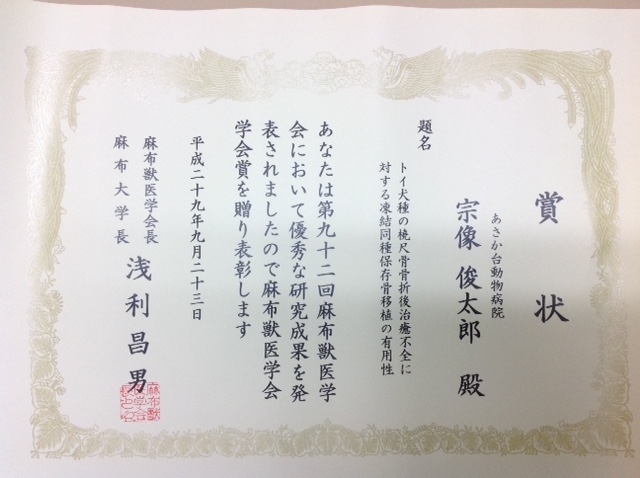 賞状
あさか台動物病院
宗像 俊太郎 殿
題名
トイ犬種の橈尺骨骨折後治癒不全に
対する凍結同種保存骨移植の有用性
あなたは第九十二回麻布獣医学
会において優秀な研究成果を発
表されましたので麻布獣医学会
学会賞を贈り表彰します
平成二十九年九月二十三日
麻布獣医学会長
麻布大学長
浅利昌男
麻布獣
医学会
長之印